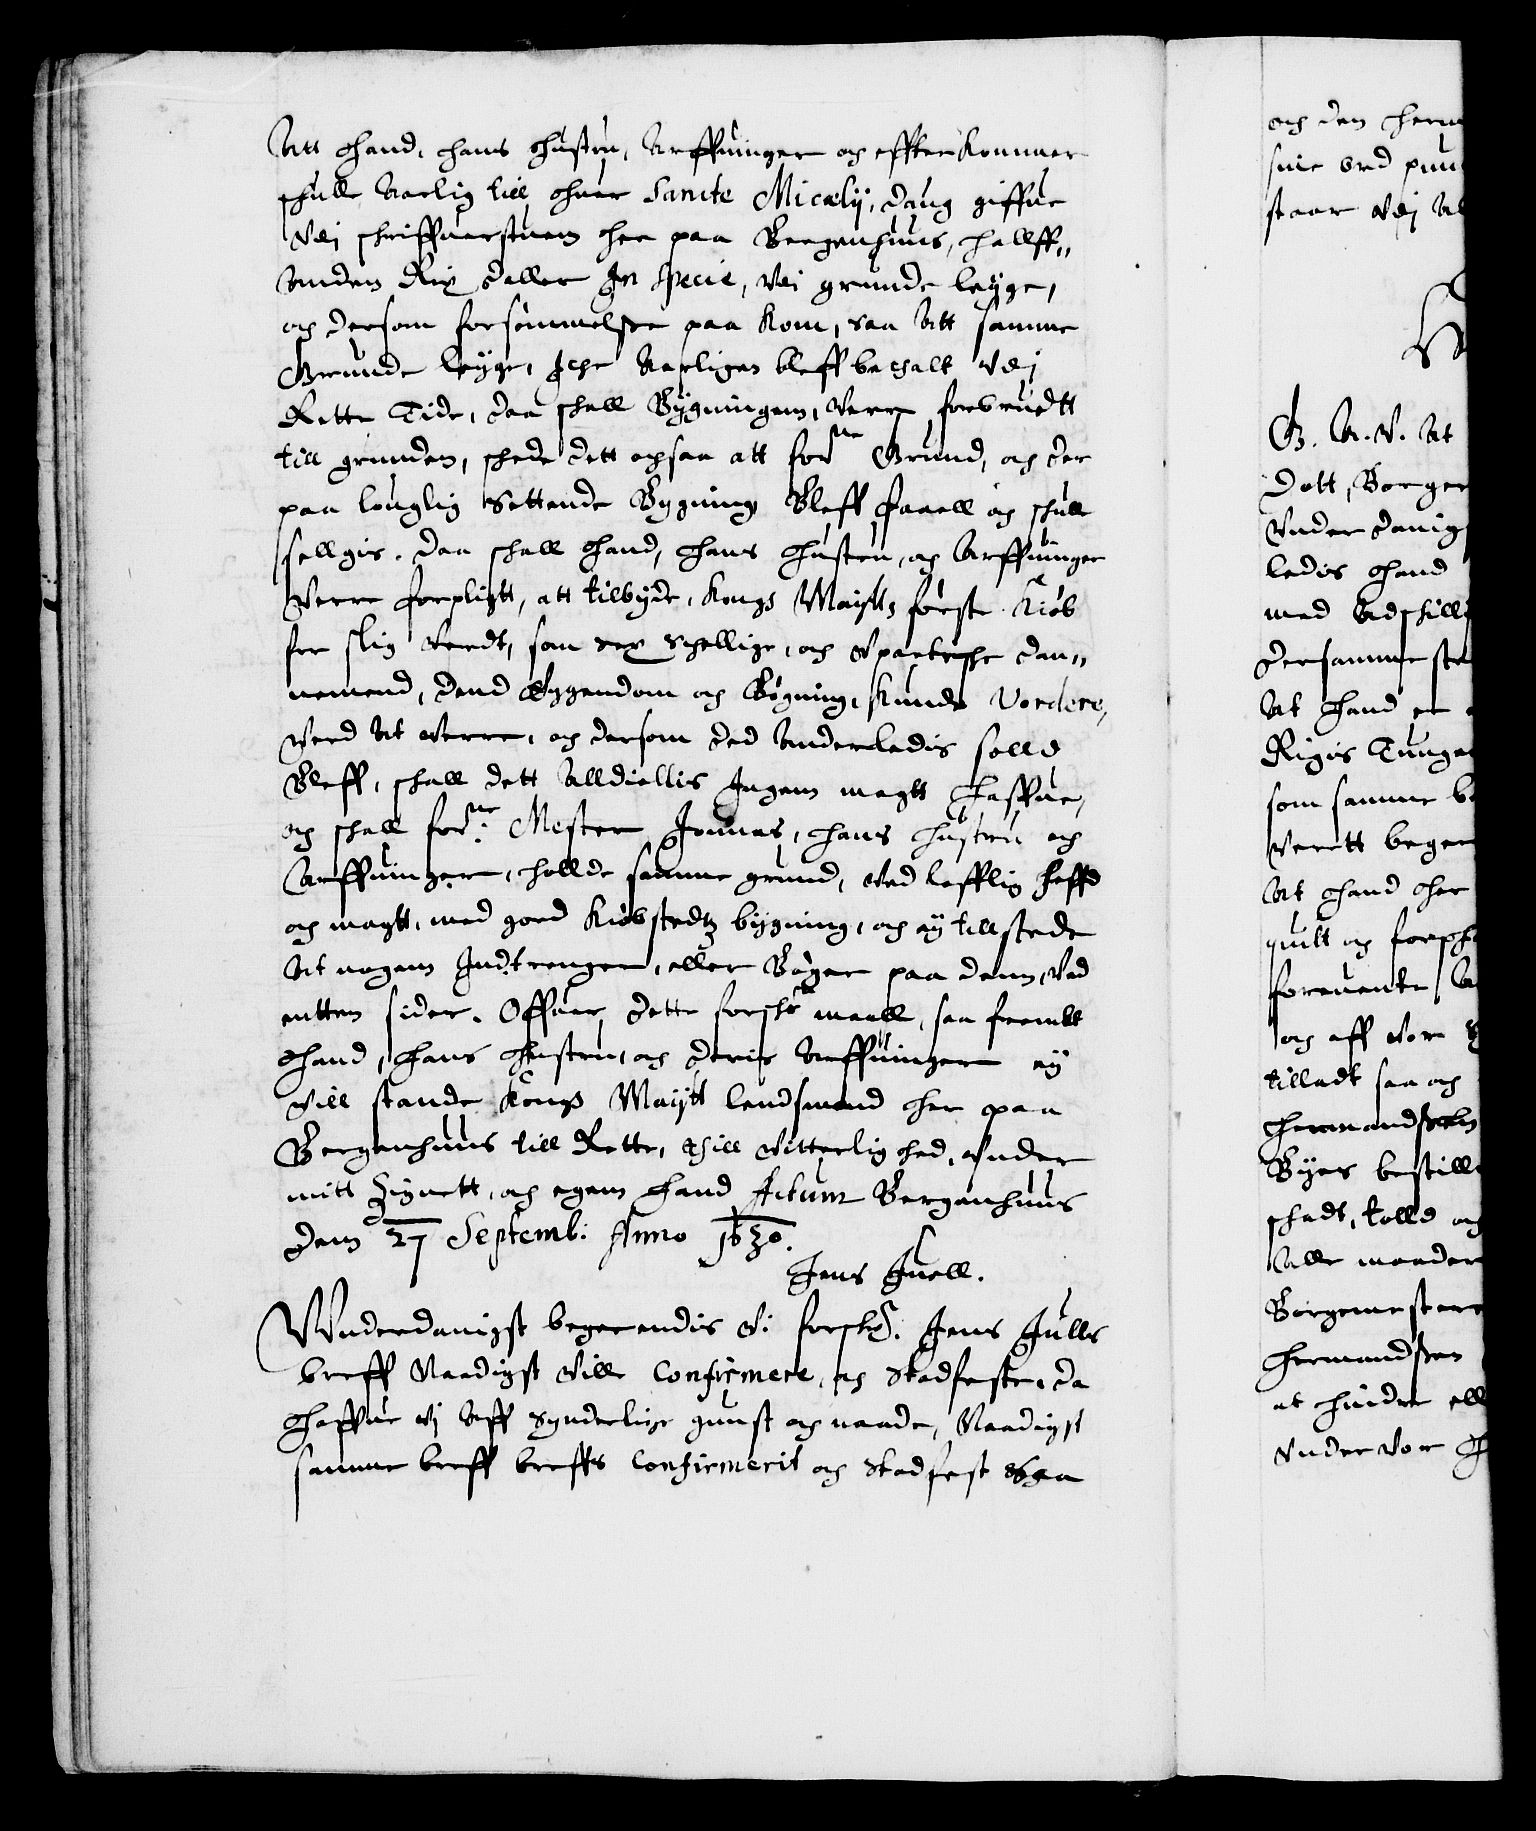 Att hand, hans hustru, Arffuinger og effterkommer
skulle Aarlig till huer Sancte Micælij, daug giffue
udj schriffuerstuen her paa Bergenhuus, halff„
anden Rix daller In specie, udi grunde leÿge,
og dersom forsømmelsse paa kom, saa Att samme
Grunde leÿge, Iche Aarligen bleff bethalt udj
Rette Tide, daa schall Bÿgningen, verre forbrudtt
till grunden, schede dett ogsaa att forne Grund, og der
paa louglig settende Bÿgning Bleff faaell og schulle
sellgis. daa schall hand, hans hustru, og Arffuinger
verre forpligtt, att tilbÿde, Kongs Maÿtts første Kiøb
for slig verdt, som sex schellige, og upartische dan„
nemend, dend Eÿgendom og Bÿgning, kunde vordere,
verd At verre, og dersom ded Anderledis solld
Bleff, schall dett Alldielles Ingen magtt haffue,
og schall forne: Mester Jonnas, hans hustru og
Arffuinger, hollde samme grund, ved lofflig heffd
og magtt, med goed Kiøbstedtz bÿgning, og eÿ tillstede
At nogen Indtrenger, eller Bÿger paa denn, ved
entten sider. Offuer dette forschr maall, saa fremtt
hand, hans hustru, og deris Arffuinger eÿ
vill stande Kongs Maÿtt lendsmand her paa
Bergenhuus till Rette, thill vitterlighed, under
mitt Zignett, og egen hand Actum Bergenhuus
Dem 27 Septemb: Anno 1630.
Jens Juell.
Wnderdanigst begerendis Vi forschr. Jens Juells
breff Naadigst ville Confirmere, og stadfeste, da
haffue vj Aff synderlige gunst og naade, Naadigst
samme breff breffs Confirmerit og stadfest Och
og den herm
sine ord pun
staar udj Al
G. A. V. At
Dott, Borger
Under danig
ledis hand
med Adschill
Dersamme ste
At hand er
Rigis Tunge
som samme be
verett beger
At hand her
quitt og forsch
foreuente A
og aff vor
tilladt saa og
Hermandssen
Bÿes bestill
schadt, tolld og
Alle maader
Borgemestere
Hermandssen
at hindre ell
under vor